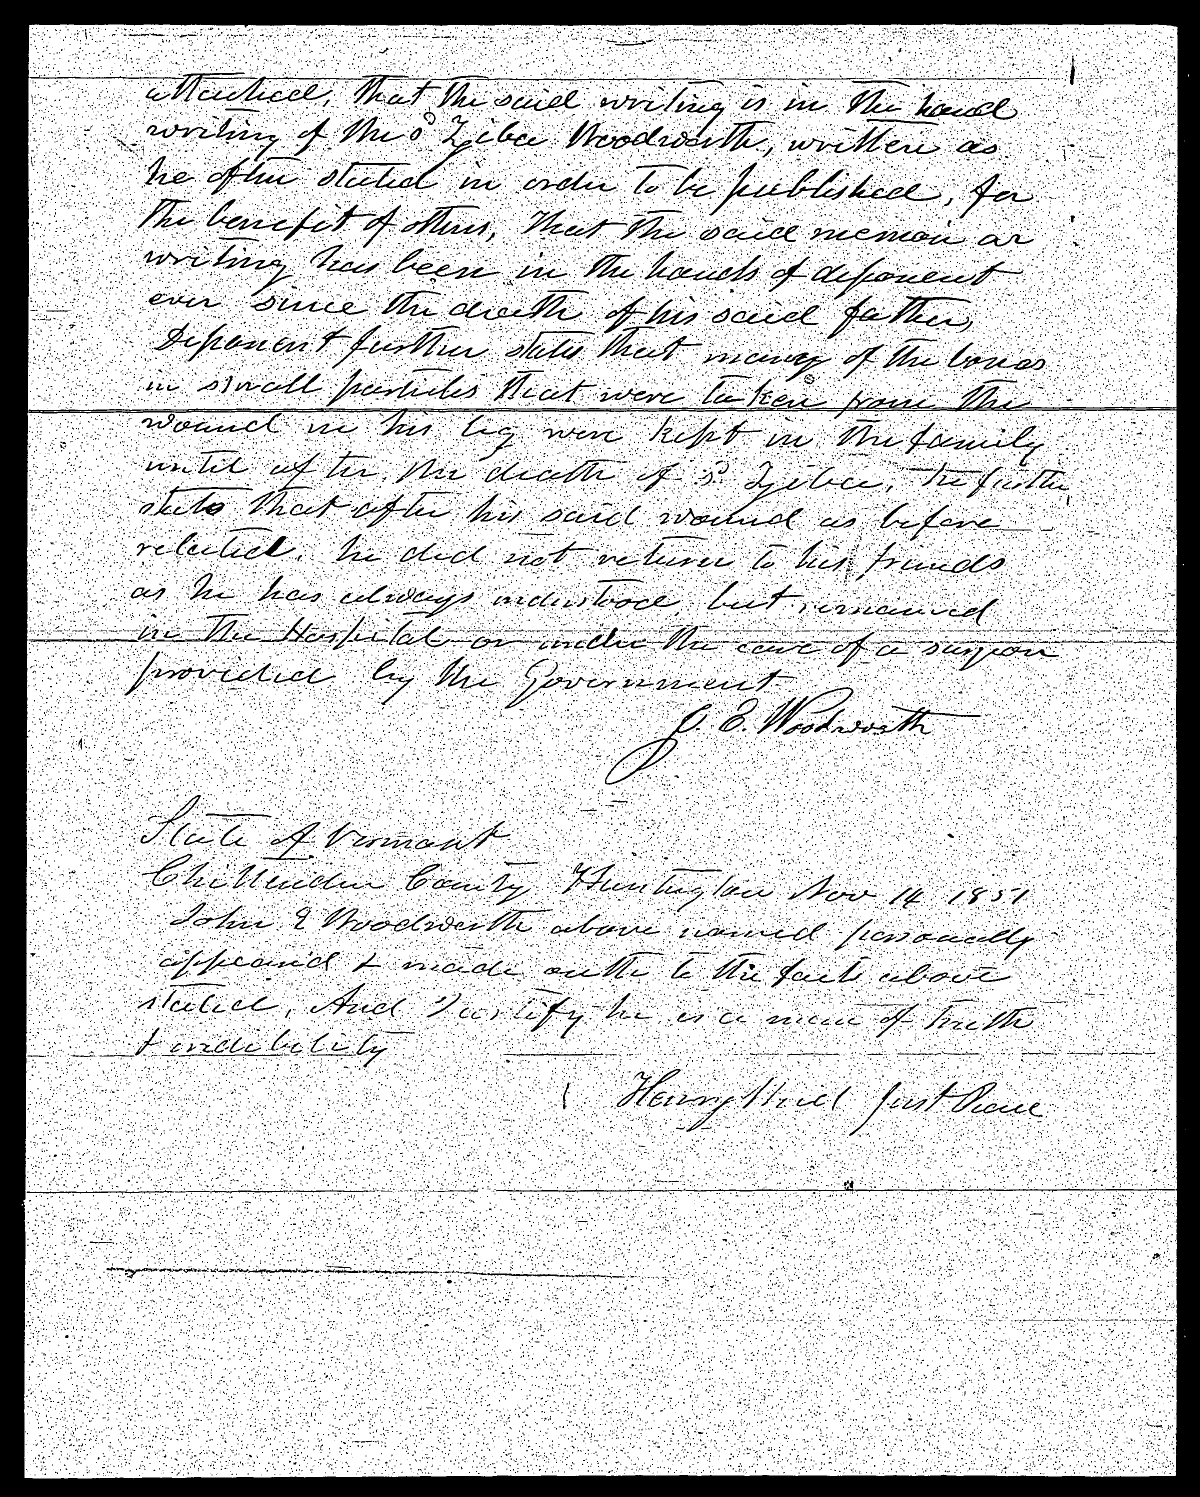 attached, that the said writing is in the hand
writing of the sd Ziba Woodworth, written as
he often stated in order to be published, for
the benefit of others, That the said memoir or
writing has been in the hands of deponent
ever since the death of his said father,
Deponent further states that many of the bones
in small particles that were taken from the
wound in his leg were kept in the family
until after the death of sd Ziba, He further
states that after his said wound as before
related, he did not return to his friends
as he has always understood, but remained
in the Hospital or under the care of a surgeon
provided by the Government
J. E. Woodworth
State of Vermont
Chittenden County Huntington Nov 14 1851
John E Woodworth above named personally
appeared & made oath to the facts above
stated, And I certify he is a man of truth
& credibility
Henry Just Peace